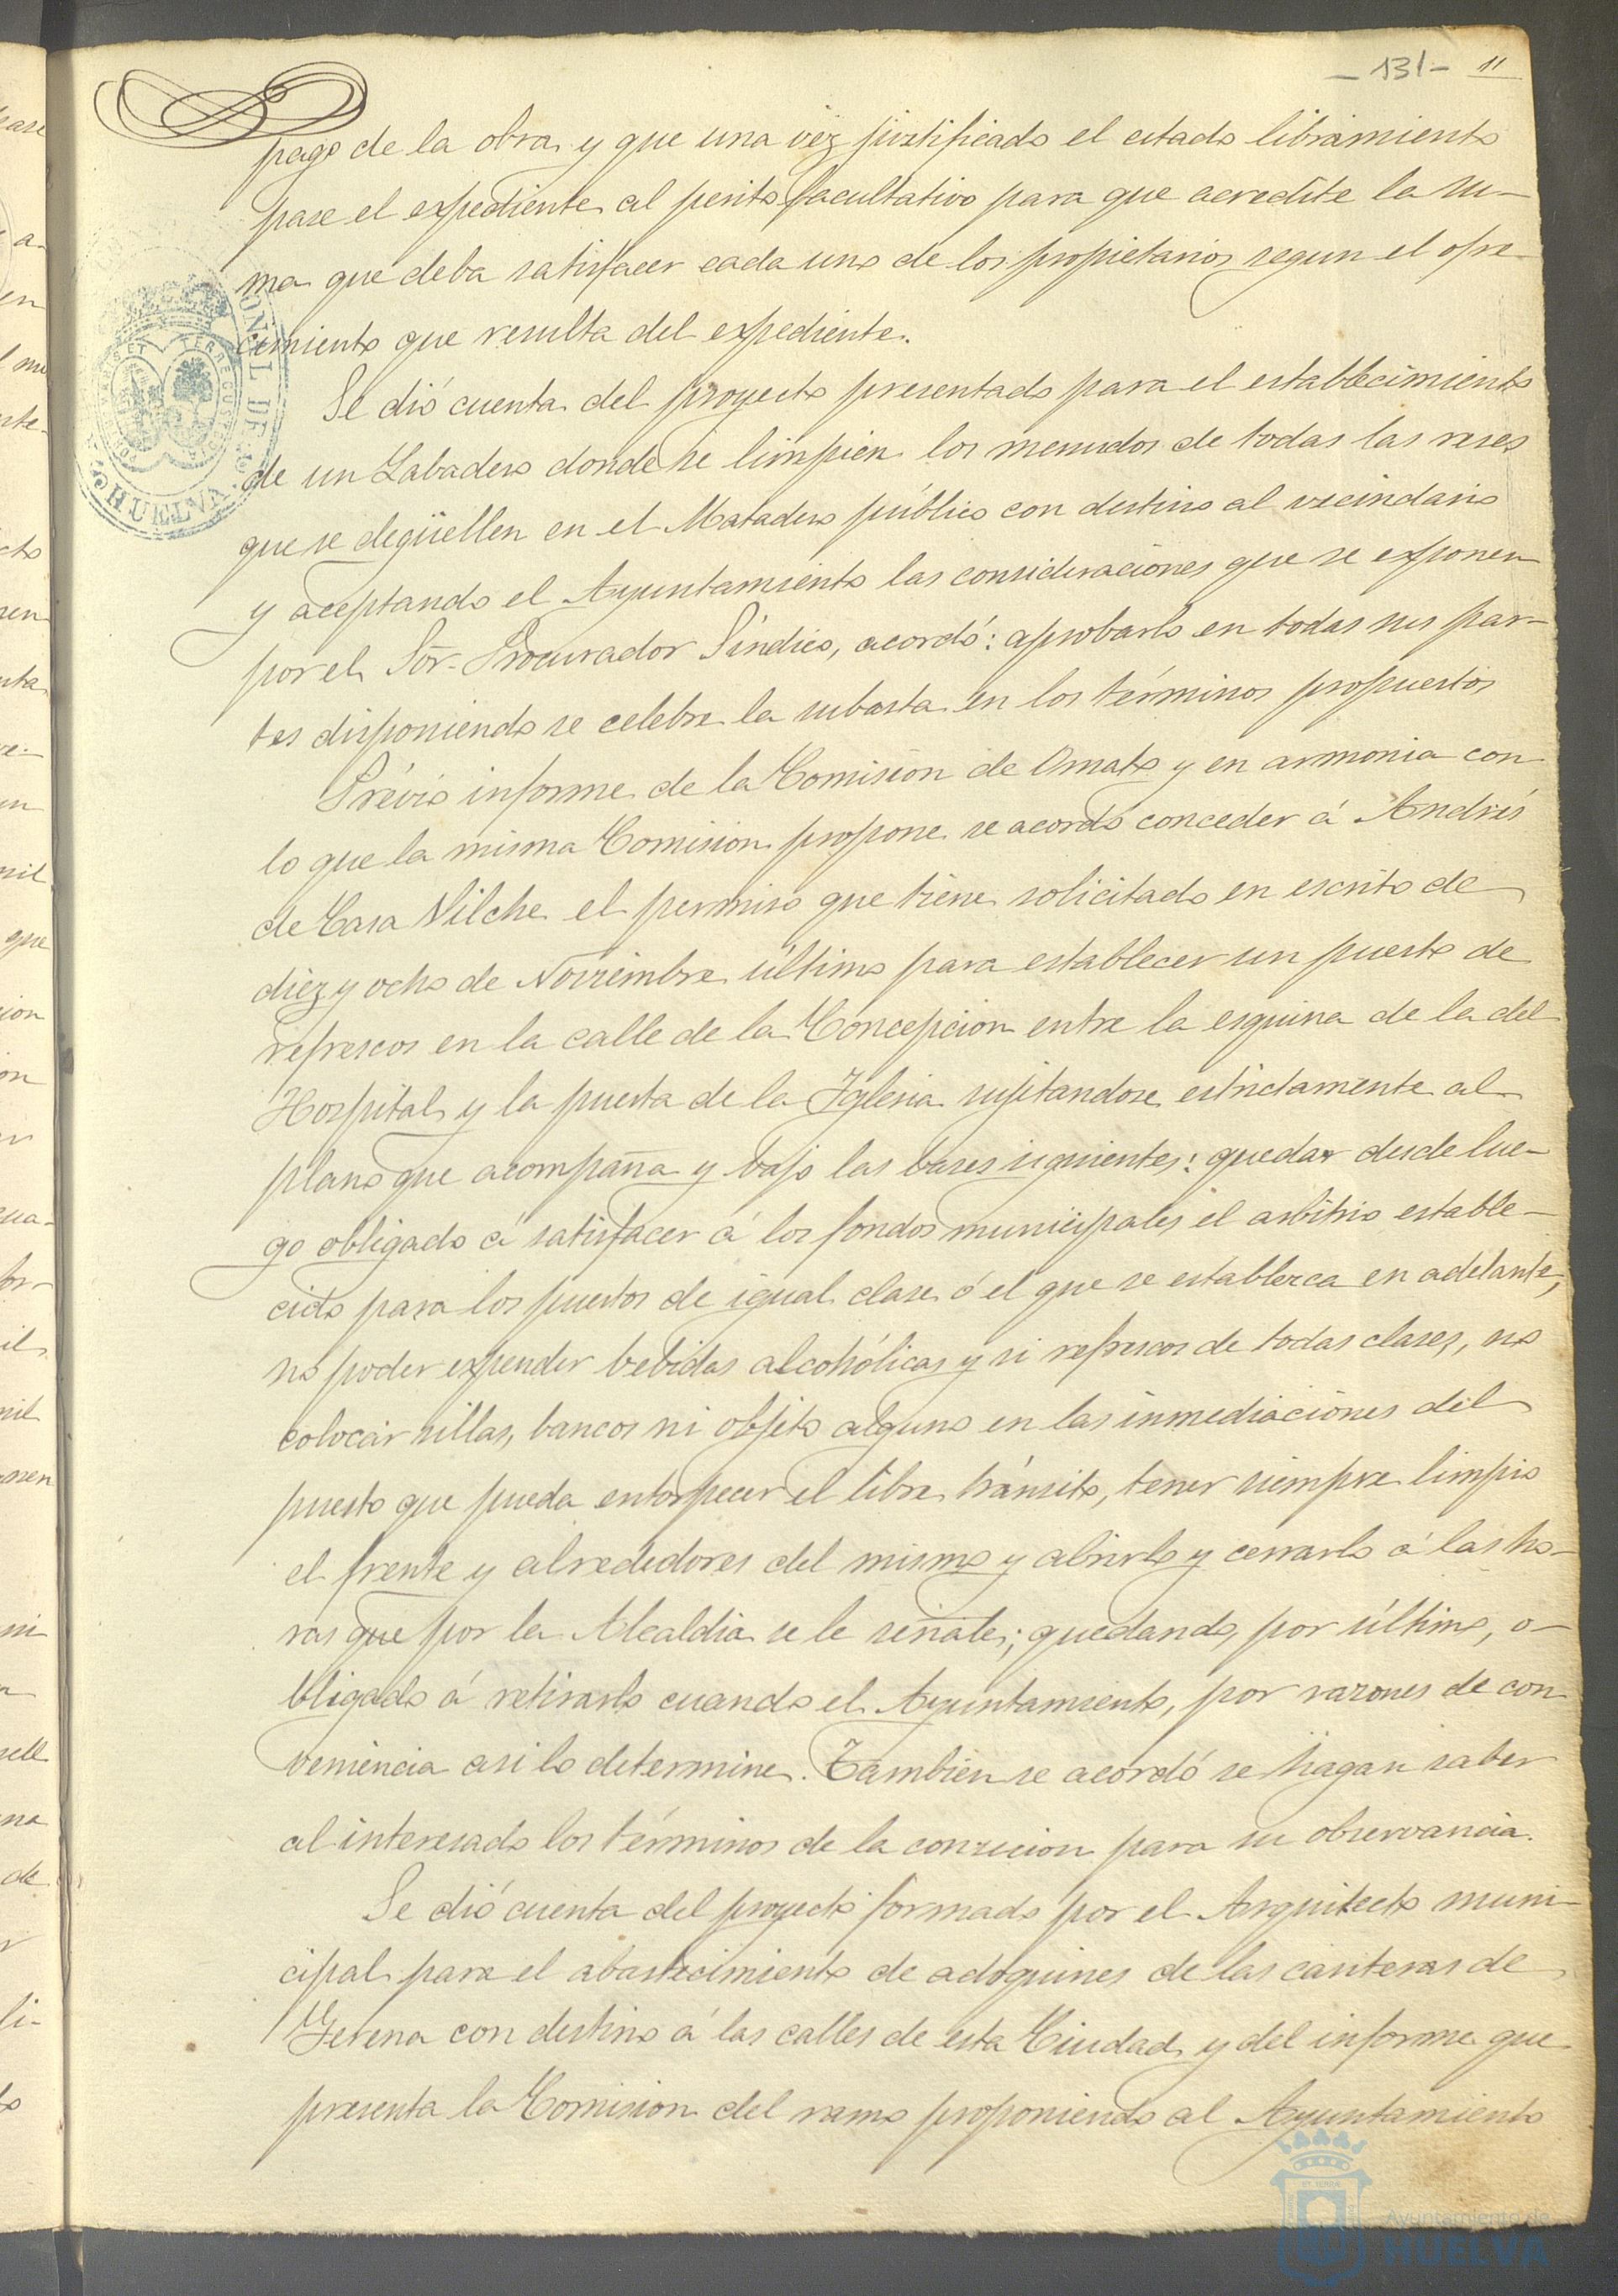 - 131 - 11
pago de la obra y que una véz justificado el citado libramiento
pase el expediente al perito facultativo para que acredite la su-
ma que deba satisfacer cada uno de los propietarios segun el ofre-
cimiento que resulta del expediente.
Se dió cuenta del proyecto presentado para el establecimiento
de un Labadero donde se limpien los menudos de todas las reses
que se degüellen en el Matadero público con destino al vecindario
y aceptando el Ayuntamiento las consideraciones que se exponen
por el Sor. Procurador Síndico, acordó: aprobarlo en todas sus par-
tes disponiendo se celebre la subasta en los términos propuestos
Prévio informe de la Comision de Ornato y en armonia con
lo que la misma Comision propone se acordó conceder á Andrés
de Casa Vilche el permiso que tiene solicitado en escrito de
diez y ocho de Noviembre último para establecer un puesto de
refrescos en la calle de la Concepcion entre la esquina de la del
Hospital y la puerta de la Iglesia sujetandose estrictamente al
plano que acompaña y bajo las bases siguientes: quedar desde lue-
go obligado á satisfacer á los fondos municipales el arbitrio estable-
cido para los puestos de igual clase ó el que se establezca en adelante,
no poder expender bebidas alcohólicas y si refrescos de todas clases, no
colocar sillas, bancos ni objeto alguno en las inmediaciones del
puesto que pueda entorpecer el libre tránsito, tener siempre limpio
el frente y alrededores del mismo y abrirlo y cerrarlo á las ho-
ras que por la Alcaldia se le señale; quedando, por último, o-
bligado á retirarlo cuando el Ayuntamiento, por razones de con
veniencia asi lo determine. Tambien se acordó se hagan saber
al interesado los términos de la concesion para su observancia.
Se dió cuenta del proyecto formado por el Arquitecto muni-
cipal para el abastecimiento de adoquines de las canteras de
Gerena con destino á las calles de esta Ciudad y del informe que
presenta la Comision del ramo proponiendo al Ayuntamiento
HUELVA
Ayuntamiento de
HUELVA